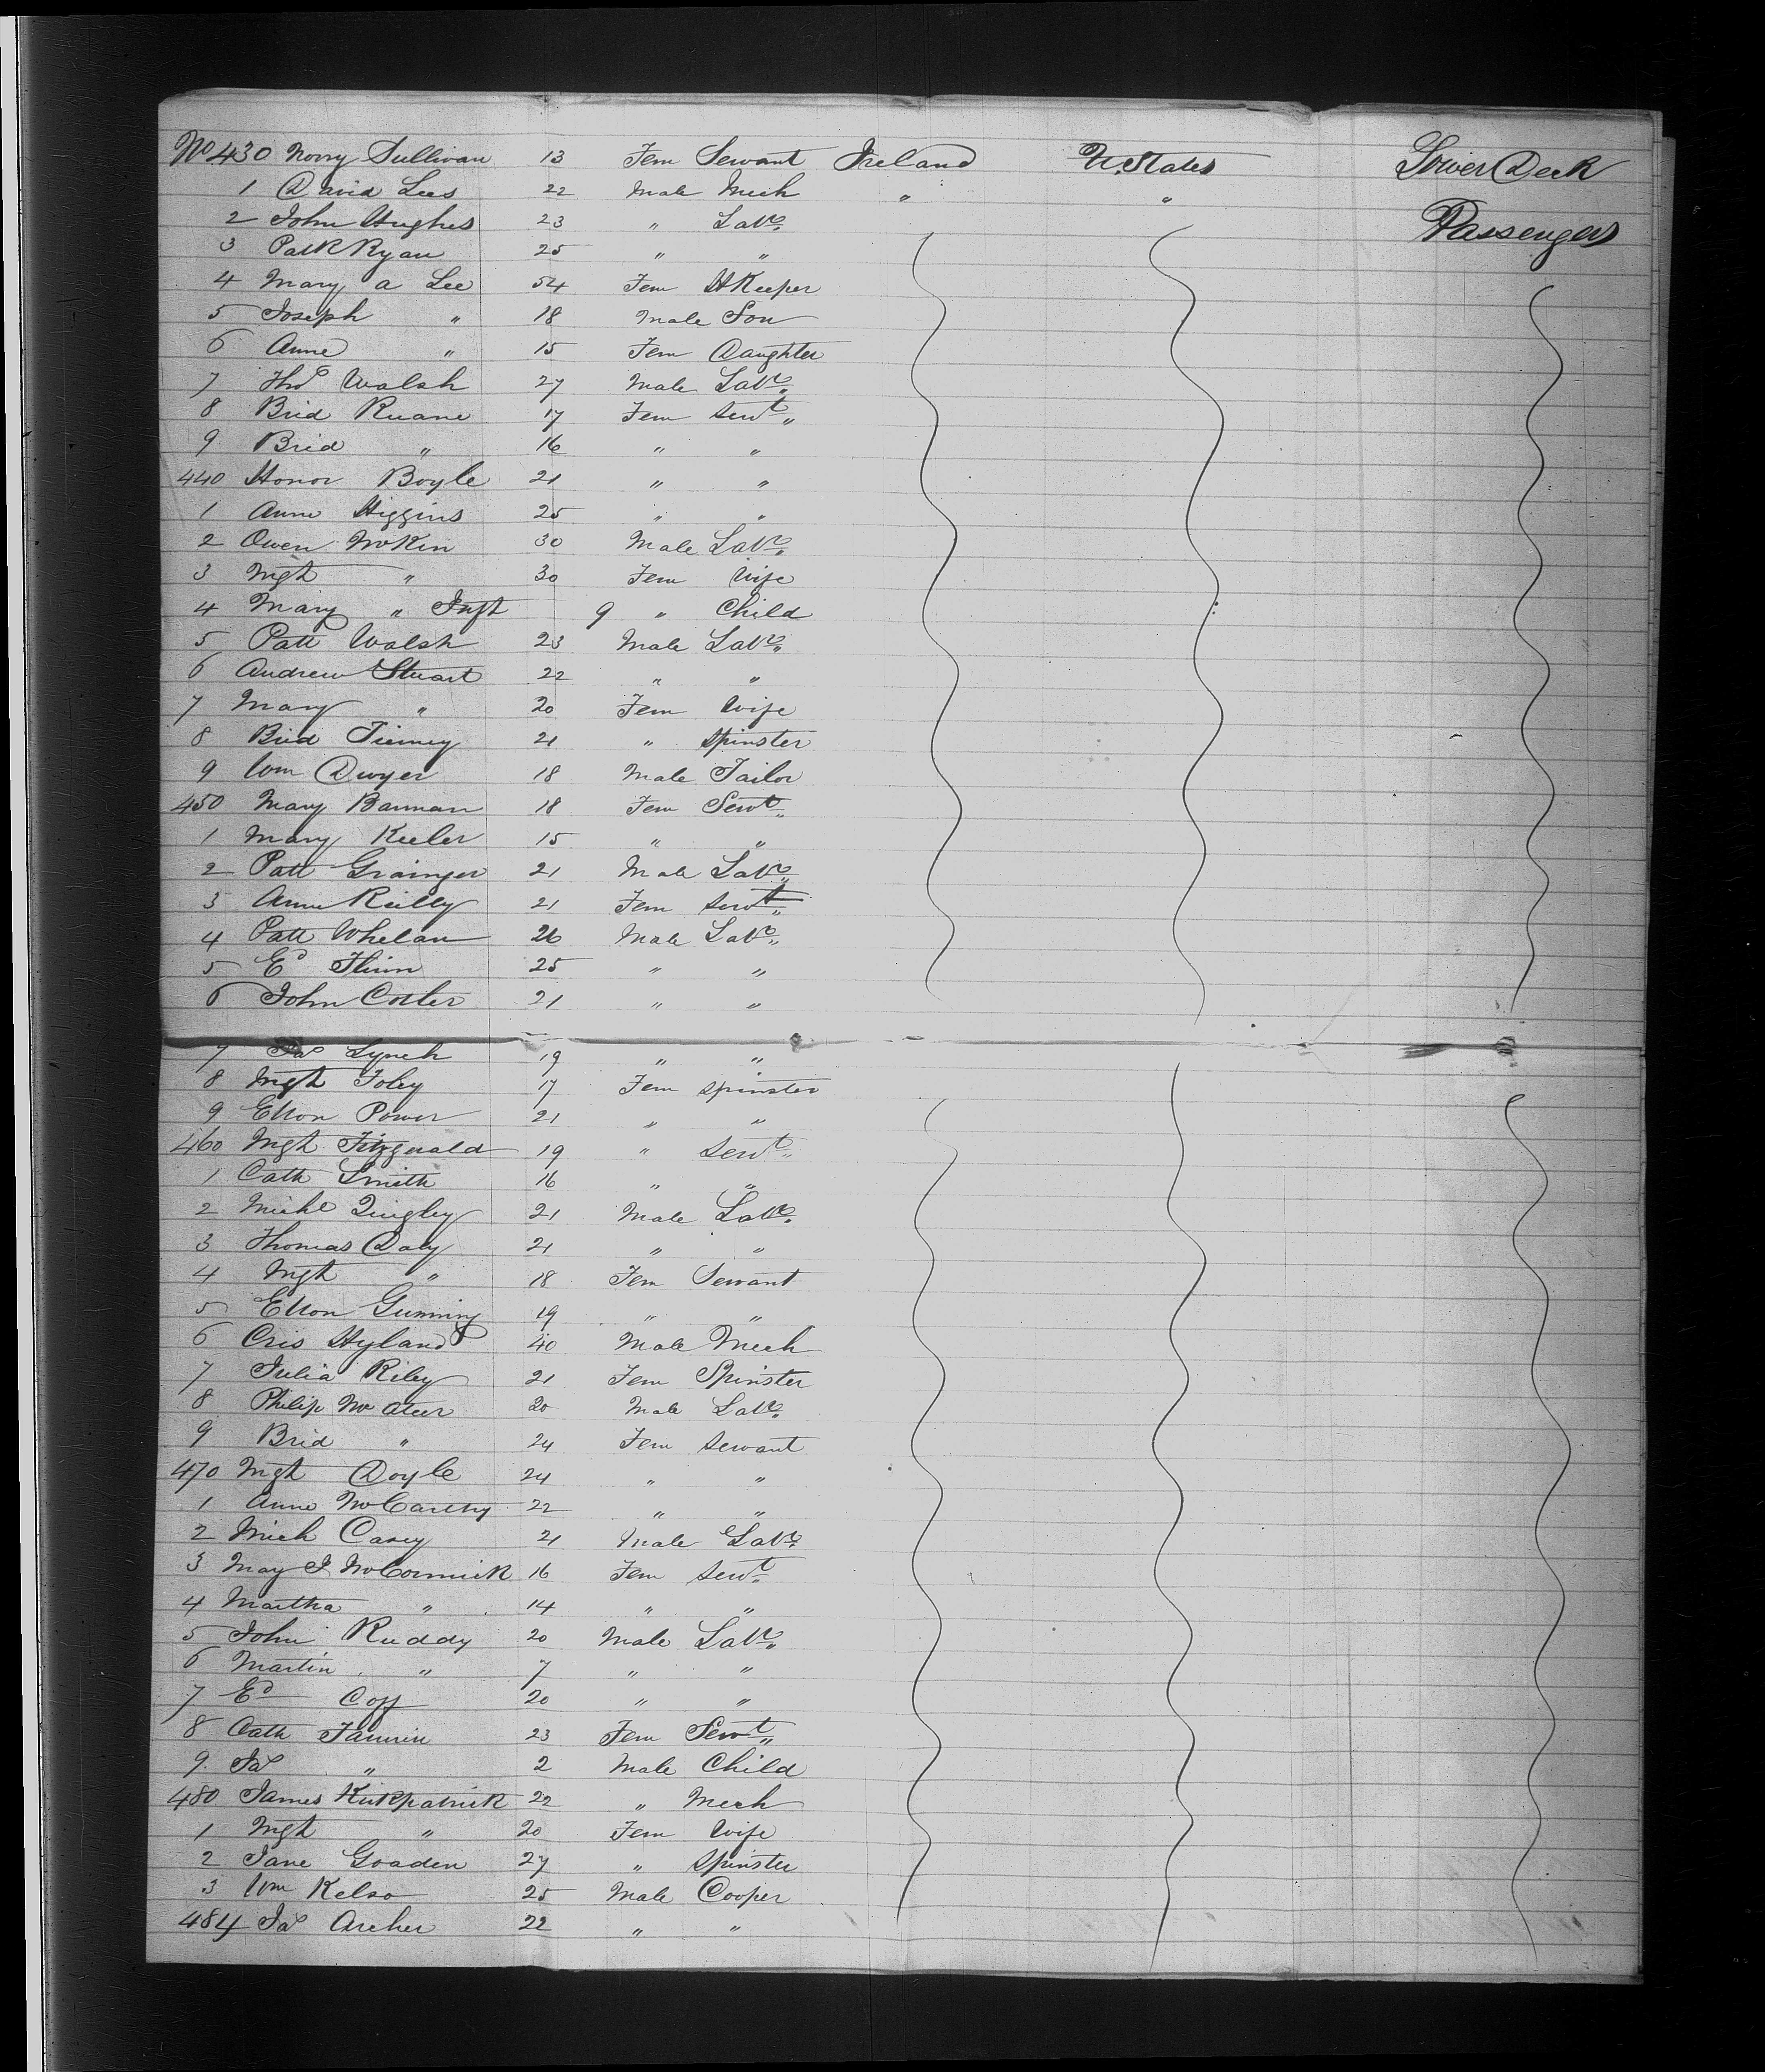 No 430 Norry Sullivan 13 Fem Servant Ireland U. States Lower Deck
1 David Lees 22 Male Mech " "
Passengers
2 John Hughes 23 " Labr
3 Patk Ryan 25 " "
4 Mary A Lee 54 Fem HKeeper
5 Joseph " 18 Male Son
6 Anne " 15 Fem Daughter
7 Thos Walsh 27 Male Labr
8 Brid Ruane 17 Fem Servt
9 Brid " 16 " "
440 Honor Boyle 21 " "
1 Anne Higgins 25 " "
2 Owen McKin 30 Male Labr
3 Mgt " 30 Fem Wife
4 Mary " Inft 9 " Child
5 Patt Walsh 23 Male Labr
6 Andrew Stuart 22 " "
7 Mary " 20 Fem Wife
8 Brid Tierney 21 " Spinster
9 Wm Dwyer 18 Male Tailor
450 Mary Bannan 18 Fem Servt
1 Mary Keeler 15 " "
2 Patt Grainger 21 Male Labr
3 Anne Reilly 21 Fem Servt
4 Patt Whelan 26 Male Labr
5 Ed Flinn 25 " "
6 John Coster 21 " "
7 Jas Lynch 19 " "
8 Mgt Foley 17 Fem Spinster
9 Ellen Power 21 " "
460 Mgt Fitzgerald 19 " Servt
1 Cath Smith 16 " "
2 Michl Quigley 21 Male Labr
3 Thomas Daly 21 " "
4 Mgt " 18 Fem Servant
5 Ellen Gunning 19 " "
6 Cris Hyland 40 Male Mech
7 Julia Riley 21 Fem Spinster
8 Philip McAteer 20 Male Labr
9 Brid " 24 Fem Servant
470 Mgt Doyle 24 " "
1 Anne McCarthy 22 " "
2 Mich Casey 21 Male Labr
3 May J McCormick 16 Fem Servt
4 Martha " 14 " "
5 John Ruddy 20 Male Labr
6 Martin " 7 " "
7 Ed 20 " "
8 Cath 23 Fem Servt
9 Jas " 2 Male Child
480 James Kirkpatrick 22 " Mech
1 Mgt " 20 Fem Wife
2 Jane Goaden 27 " Spinster
3 Wm Kelso 25 Male Cooper
484 Jas Archer 22 " "